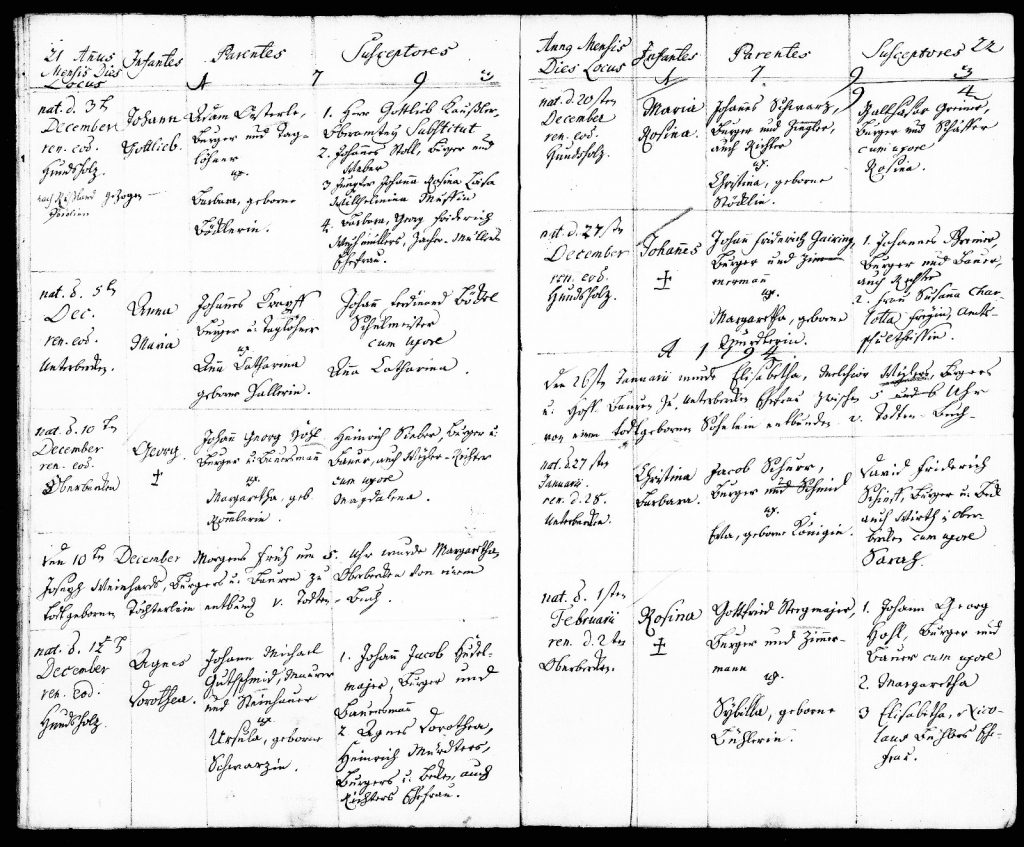 21 Anus
Mensis Dies
Locus
Infantes
Parentes
Susceptores
1 7 9 3
nat. d. 3t
December
ren. eod.
Hundsholz.
nach Rußland gezogen
Johann
Gottlieb.
Adam Oesterle,
Burger und Tag-
löhner
ux.
Barbara, geborne
Böklerin.
1. Herr Gottlieb
Oberamtey Substitut
2. Johannes Noll, Burger und
Weber
3 Jungfer Johanna Rosina Luisa
Wilhelmina
4. Barbara, Georg Friderich
Müllers
Ehefrau.
nat. d. 5t
Dec.
ren. eod.
Unterberken.
Anna
Maria
Johannes Krapff
Burger u. Taglöhner
ux
Ana Catharina
geborne Hallerin.
Johann Ferdinand Bökel
Schulmeister
cum uxore
Ana Catharina.
nat. d. 10 t
December
ren. eod.
Oberberken
Georg
+
Johann Georg
Burger u. Bauersmann
ux.
Margaretha, geb
Heinrich Sieber, Burger u
Bauer, auch Richter
cum uxore
Magdalena.
Den 10 ten December Morgens früh um 5. Uhr wurde Margaretha,
Joseph Weinhardts, Burgers u. Bauren zu Oberberken von einem
todtgebornen Töchterlein entbund v. Todten-Buch.
nat. d. 12 t
December
ren. eod.
Hundsholz.
Agnes
Dorothea.
Johann Michael
Gutschmid, Maurer
und Steinhauer
ux
Ursula, geborne
Schwarzin.
1. Johann Jacob Hudel-
majer, Burger und
Bauersmann
2 Agnes Dorothea,
Heinrich Murdters,
Burgers u. Beken, auch
Richters Ehefrau.
Anno Mensis
Dies Locus
Infantes
Parentes
Susceptores 22
1 7 9 3
9 4
nat. d. 20 sten
December
ren. eod.
Hundsholz.
Maria
Rosina.
Johannes Schwarz,
Burger und Ziegler,
auch Richter
ux.
Christina, geborne
Stöcklin.
Balthasar Greiner,
Burger und Schäffer
cum uxore
Rosina.
nat. d. 27 sten
December
ren. eod.
Hundsholz.
Johannes
+
Johann Friderich Gairing,
Burger und Zimm
mermann
ux.
Margaretha, geborne
Murdterin.
1. Johannes
Burger und Bauer,
auch Richter
2. Frau Susanna Char-
lotta Amts-
schultheissin.
A 1 7 9 4
Den 26 sten Januarii wurde Elisabetha, Melchior Burgers
u. Bauren zu Unterberken Ehefrau zwischen 5 und 6 Uhr
von einem todtgebornen Söhnlein entbunden v. Todten-Buch.
nat. d. 27 sten
Januarii.
ren. d. 28.
Unterberken.
Christina
Barbara.
Jacob Schurr,
Burger und Schmid
ux.
Eva, geborne Königin.
David Friderich
Burger u. Bek
auch Wirth z Ober-
berken cum uxore
Sarah.
nat. d. 1 sten
Februarii
ren. d. 2 ten
Oberberken.
Rosina
+
Gottfried Stegmajer,
Burger und Zimmer-
mann
ux.
Sybilla, geborne
Bühlerin.
1. Johann Georg
Burger und
Bauer cum uxore
2. Margaretha
3 Elisabetha, Nico-
laus Bühlers Ehe-
frau.